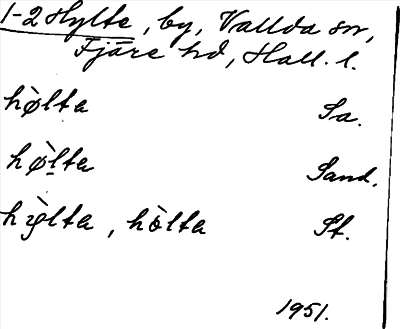 1-2 Hylte, by, Vallda sn,
Fjäre hd, Hall. l.
hø̀lta Sa.
hø̀l̠ta Sand.
hỳlta, hòlta St.
1951.